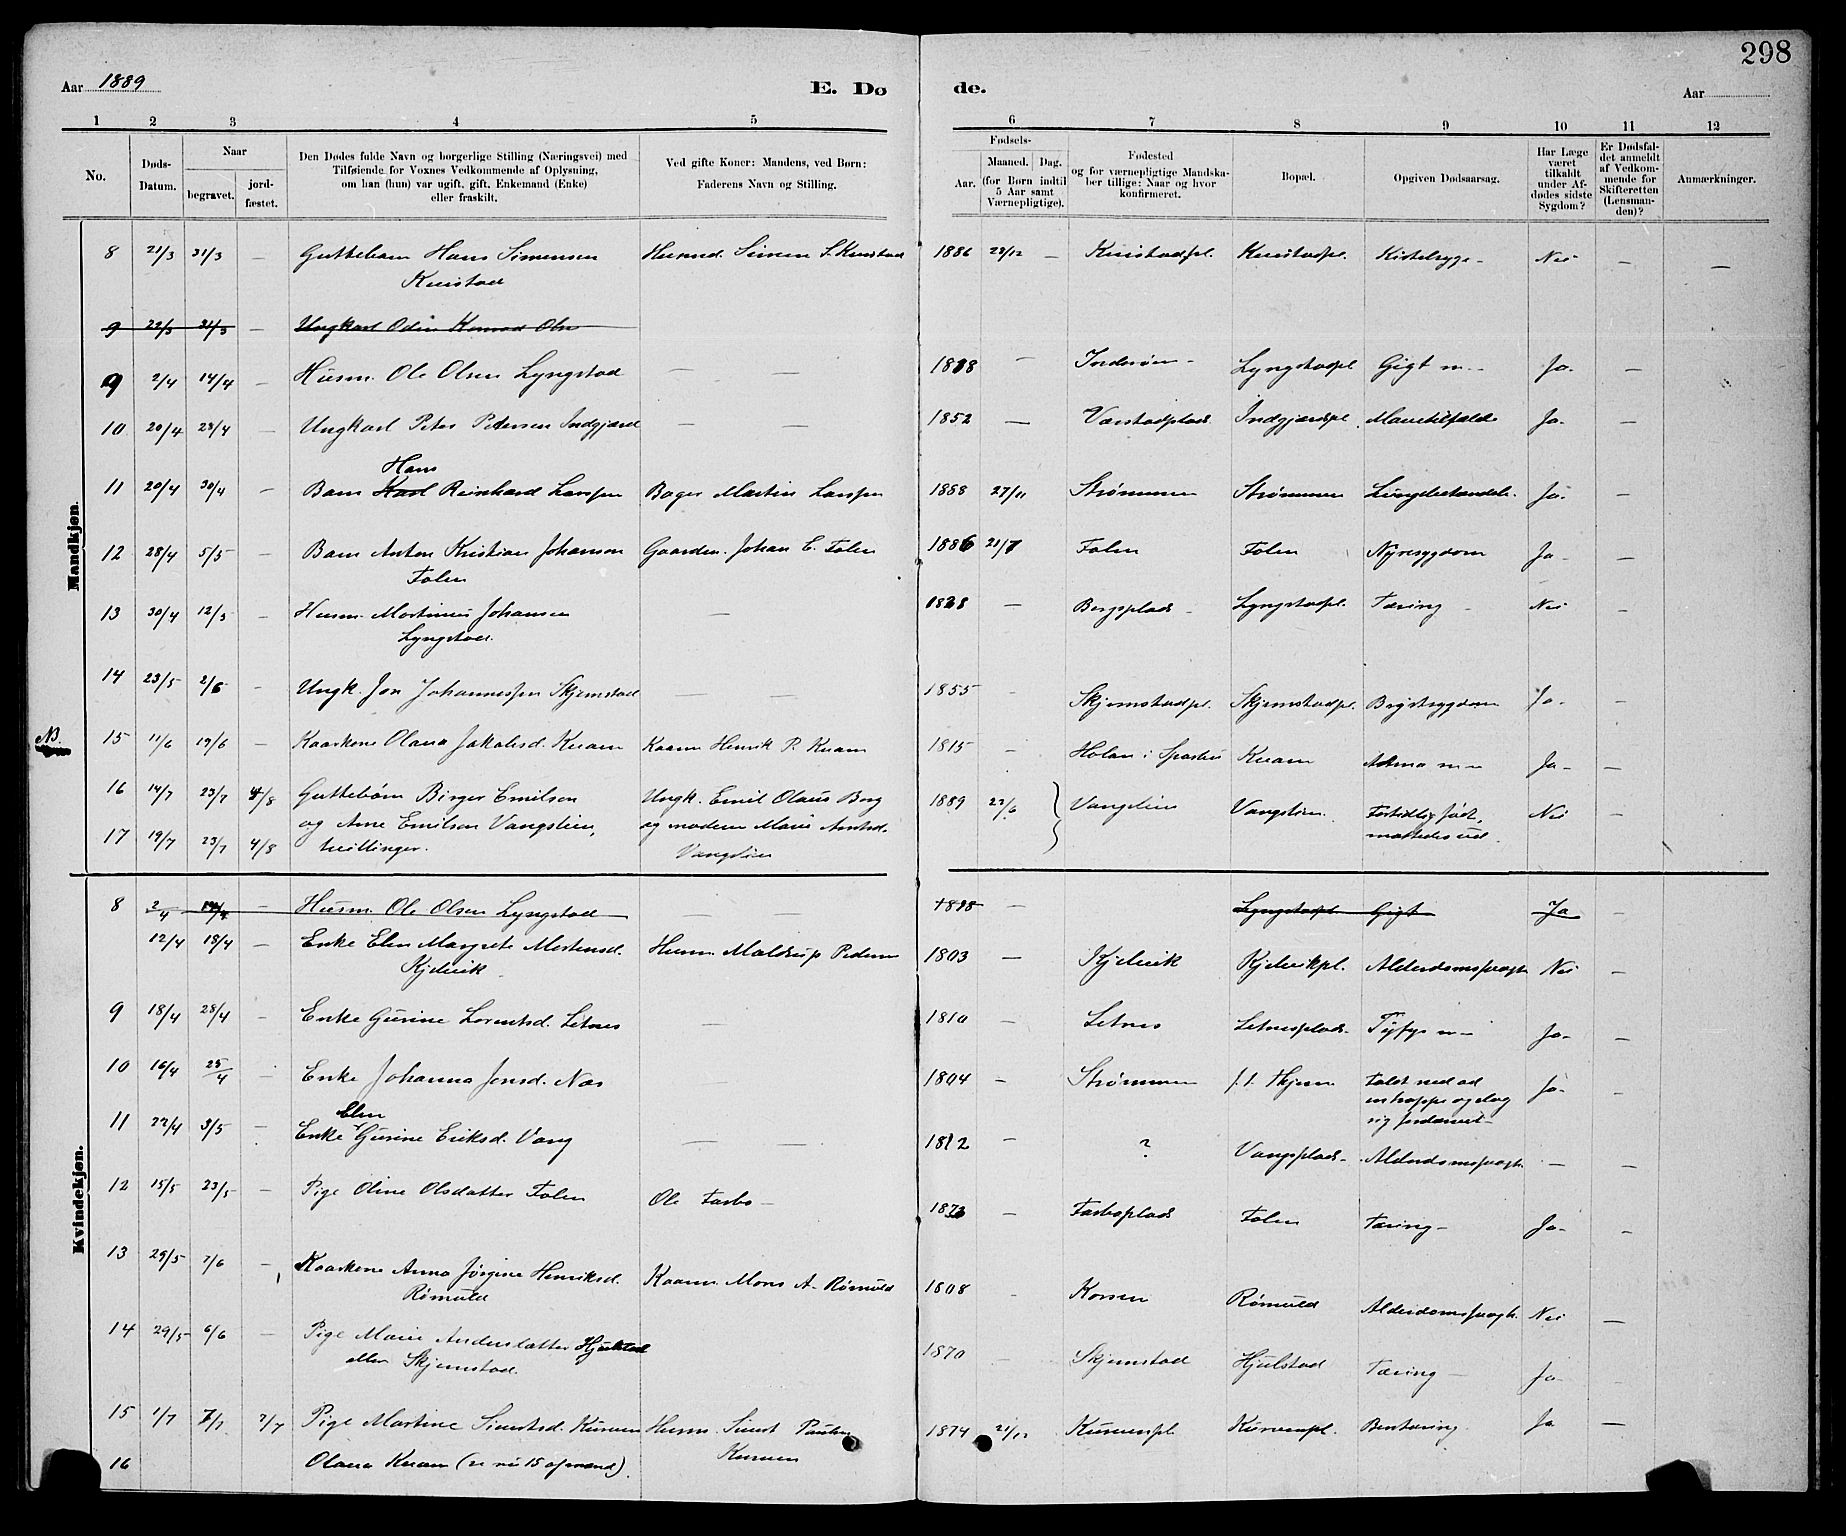 298
Aar 1889 E. Døde. Aar
1 2 3 4 5 6 7 8 9 10 11 12
No. Døds-Datum. Naar begravet. jordfæstet. Den Dødes fulde Navn og borgerlige Stilling (Næringsvei) med Tilføiende for Voxnes Vedkommende af Oplysning, om han (hun) var ugift, gift, Enkemand (Enke) eller fraskilt. Ved gifte Koner: Mandens, ved Børn: Faderens Navn og Stilling. Fødsels- Aar. Maaned. Dag. (for Børn indtil 5 Aar samt Værnepligtige). Fødested og for værnepligtige Mandskaber tillige: Naar og hvor konfirmeret. Bopæl. Opgiven Dødsaarsag. Har Læge været tilkaldt under Afdødes sidste Sygdom? Er Dødsfaldet anmeldt af Vedkommende for Skifteretten (Lensmanden)? Anmærkninger.
Mandkjøn.
8 21/3 31/3 — Guttebarn Hans Simensen Husmd. Simen S. 1886 — Nei — —
9 22/3 31/3 — Ungkarl Odin Konrad Ols
9 2/4 14/4 — Husm. Ole Olsen Lyngstad — — 1818 — Inderøen — Lyngstadpl Gigt m — Ja — —
10 20/4 28/4 — Ungkarl Peter Pedersen Indgjærd — — 1852 — Værstadplads Indgjærdspl. Mavetilfælde Ja — —
Hans
11 20/4 30/4 — Barn Karl Reinhard Larsen Bager Martin Larsen 1888 27/11 Strømmen Strømmen Lungebetændels. Ja — —
12 28/4 5/5 — Barn Anton Kristian Johansen Gaardm. Johan E. Folen 1886 21/7 Folen Folen Nyresygdom Ja — —
Folen
13 30/4 12/5 — Husm. Martinus Johansen — 1828 — Bergsplads — Lyngstadpl. Tæring — Nei —
Lyngstad.
14 23/5 2/6 — Ungk. Jon Johannessen Skjemstad — — 1855 — Skjemstadpl. Skjemstadpl. Brystsygdom Ja — —
NB. 15 11/6 19/6 — Kaarkone Olana Jakobsd. Kvam Kaarm. Henrik P. Kvam 1815 — Holan i Sparbu Kvam Astma m — Ja — —
16 14/7 23/7 4/8 Guttebørn Birger Emilsen Ungk. Emil Olaus Berg 1889 22/6 Vangslien Vangslien Fortidlig født, Nei —
17 19/7 23/7 4/8 og Arne Emilsen Vangslien, og moderen Marie Arntsd. mattedes ud.
tvillinger. Vangslien
Kvindekjøn.
8 2/4 14/4 — Husm. Ole Olsen Lyngstad — — 1818 — Lyngstadpl. Gigt Ja —
12/4 18/4 — Enke Elen Margrete Mortensd. Husm. Peders 1803 — Kjelvik Kjelvikpl. Alderdomssvagh. Nei —
Kjelvik
9 18/4 28/4 — Enke Gurine Lorentsd. Letnes — 1810 — Letnes Letnesplads — Tyfus m — Ja — —
10 16/4 25/4 — Enke Johanna Jonsd. Næs — 1804 — Strømmen Faldt ned ad Ja — —
en trappe og slog
sig fordærvet —
Elen
11 22/4 3/5 — Enke Gurine Eriksd. Vang — — 1812 — ? Vangsplads — Alderdomssvagh. — —
12 15/5 23/5 — Pige Oline Olsdatter Folen Ole Tarbo — 1873 — Tarboplads Folen Tæring — Ja — —
13 29/5 7/6 — Kaarkone Anna Jørgine Henriksd. Kaarm. Mons A. Rømuld 1808 — Korsen Rømuld Alderdomssvagh. Nei —
Rømuld
14 29/5 6/6 — Pige Marie Andersdatter Hjulstad 1870 — Skjemstad Hjulstad Tæring — Ja — —
eller Skjemstad.
15 1/7 7/7 7/7 Pige Martine Simetsd. Kurven Husm. Simet Paulsen 1874 21/12 Kurvenpl. Kurvenpl. Bentæring. Ja —
Kurven
16 Olana Kvam (se no 15 af mænd).